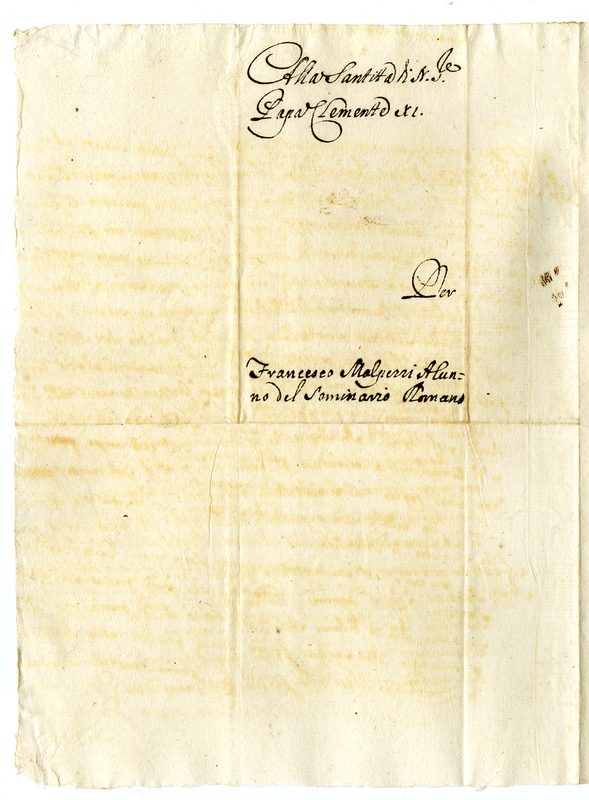 Alla Santità di N. S.re
Papa Clemente XI.
Per
Francesco Malpezzi Alun=
no del Seminario Romano